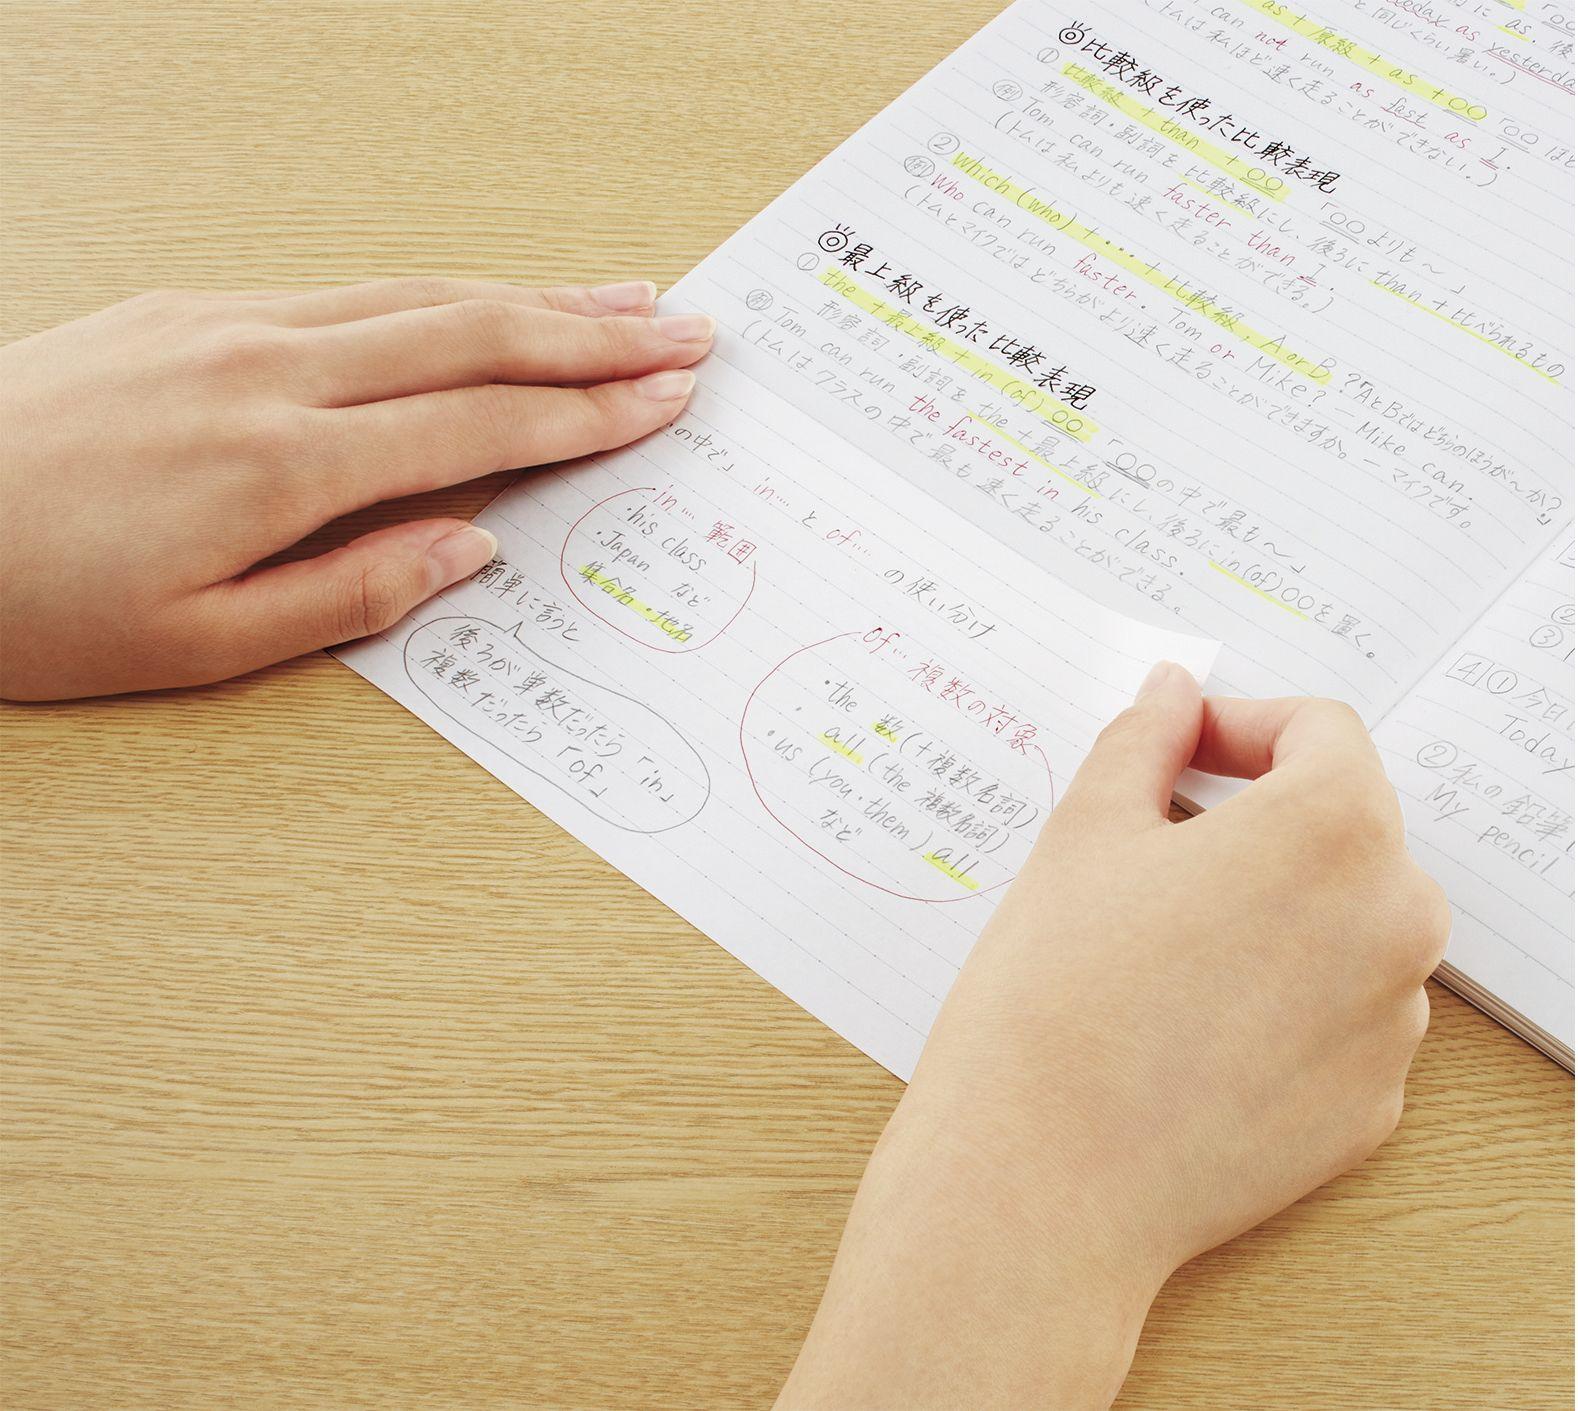 as + 原級 + as + ○○ 「○○ ほど
can not run as fast as I.
(トムは私ほど速く走ることができない。)
today as yesterday
と同じくらい暑い。)
◎比較級を使った比較表現
① 比較級 + than + ○○ 「○○よりも～」
形容詞・副詞を比較級にし、後ろに than + 比べられるもの
例 Tom can run faster than I.
(トムは私よりも速く走ることができる。)
② which (who) + … + 比較級, A or B ?「AとBではどちらのほうが～か?」
例 Who can run faster. Tom or Mike? — Mike can.
(トムとマイクではどちらがより速く走ることができますか。— マイクです。
◎最上級を使った比較表現
① the + 最上級 + in (of) ○○ 「○○の中で最も～」
形容詞・副詞を the + 最上級にし、後ろに in (of) ○○を置く。
例 Tom can run the fastest in his class.
(トムはクラスの中で最も速く走ることができる。
の中で」 in… と of… の使い分け
in… 範囲
・his class
・Japan など
集合名・地名
簡単に言うと
後ろが単数だったら「in」
複数だったら「of」
of… 複数の対象
・the 数 (+複数名詞)
・ all (the 複数名詞)
・us (you・them) all
など
②
③
4 ① 今日
Today
② 私の鉛筆
My pencil